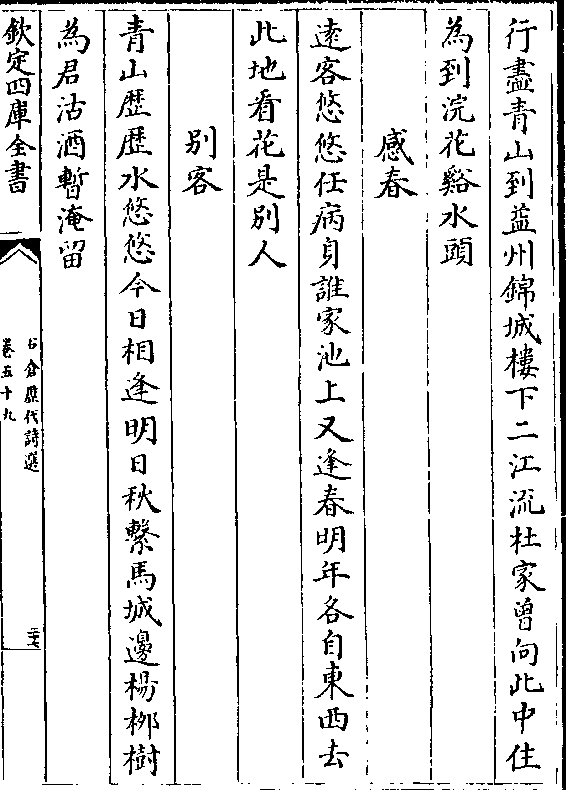 行盡青山到益州錦城樓下二江流杜家曾向此中住
為到浣花谿水頭
感春
遠客悠悠任病身誰家池上又逢春明年各自東西去
此地看花是別人
別客
青山歷歷水悠悠今日相逢明日秋繫馬城邊楊栁樹
為君沽酒暫淹留
欽定四庫全書
石倉歷代詩選
卷五十九
二十七